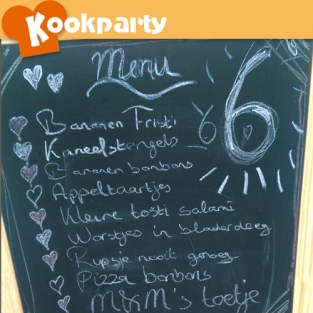 Kookparty
Menu
6
Bananen Fristi
6
Kaneelstengels
Bananen bonbons
Appeltaartjes
Kleine tosti salami
Worstjes in bladerdeeg
Rupsje nooit genoeg
Pizza bonbons
M&M's toetje